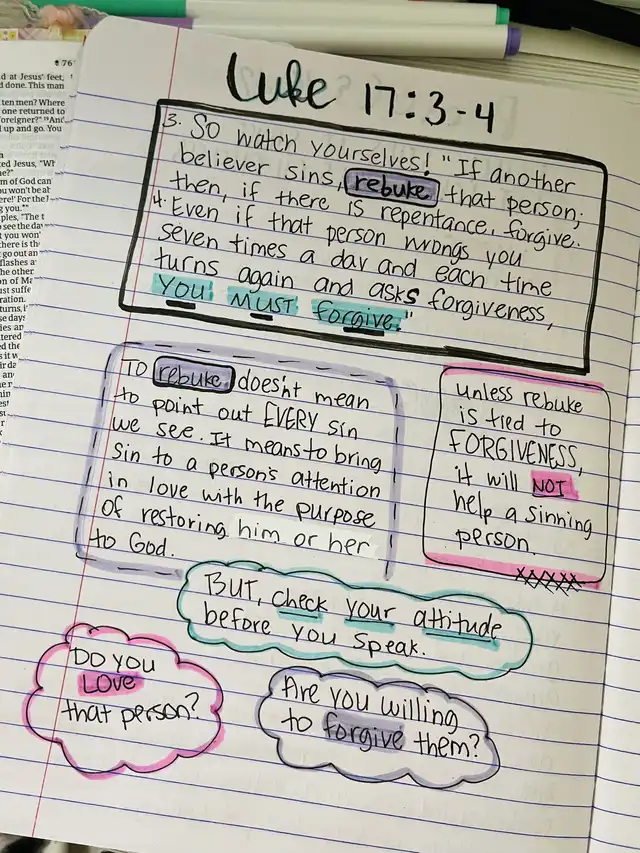 76
d at Jesus' feet,
d done. This man
ten men? Where
one returned to
oreigner?" "And
up and go. You
ed Jesus, "Wh
m of God can
ples, "The t
go out an
flashes a
Luke 17:3-4
3. So watch yourselves! "If another
believer sins, rebuke that person;
then, if there is repentance, forgive.
4. Even if that person wrongs you
seven times a day and each time
turns again and asks forgiveness,
You Must forgive."
To rebuke doesn't mean
to point out EVERY sin
we see. It means to bring
sin to a person's attention
in love with the purpose
of restoring him or her
to God.
unless rebuke
is tied to
FORGIVENESS,
it will NOT
help a sinning
person.
BUT, check your attitude
before you speak.
Do you
LOVE
that person?
Are you willing
to forgive them?